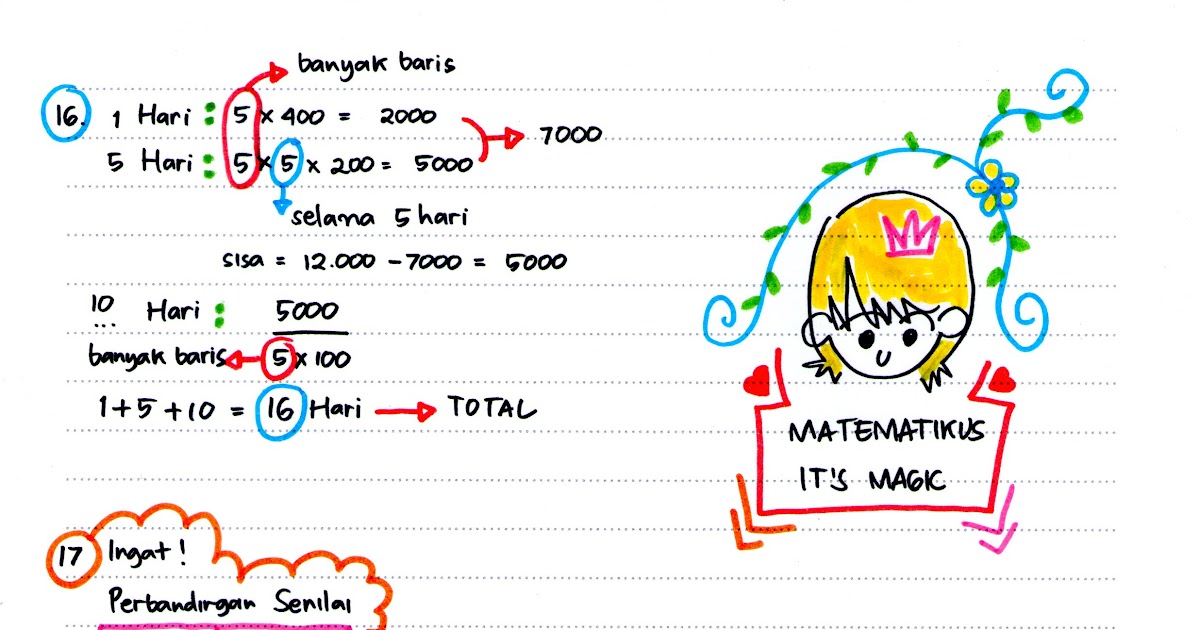 banyak baris
16. 1 Hari : 5 x 400 = 2000
7000
5 Hari : 5 x 5 x 200 = 5000
selama 5 hari
sisa = 12.000 - 7000 = 5000
10 Hari : 5000
...
banyak baris 5 x 100
1 + 5 + 10 = 16 Hari → TOTAL
MATEMATIKUS
IT'S MAGIC
17 Ingat!
Perbandingan Senilai